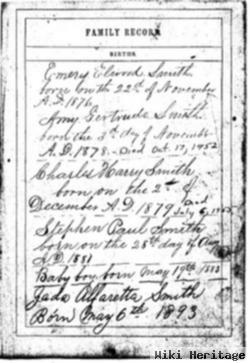 FAMILY RECORD.
BIRTHS.
Emery Elwood Smith
borne on the 22nd of November
A.D. 1876.
Amy Gertrude Smith
born the 3rd day of November
A.D. 1878. Died Oct. 17, 1952
Charles Harry Smith
born on the 2nd of
December A.D 1879 Died
July 6,
Stephen Paul Smith
born on the 28th day of Aug
A.D. 1881
Baby boy born May 19th 1883
Jada Alfaretta Smith
Born May 6th 1893
Wiki Heritage